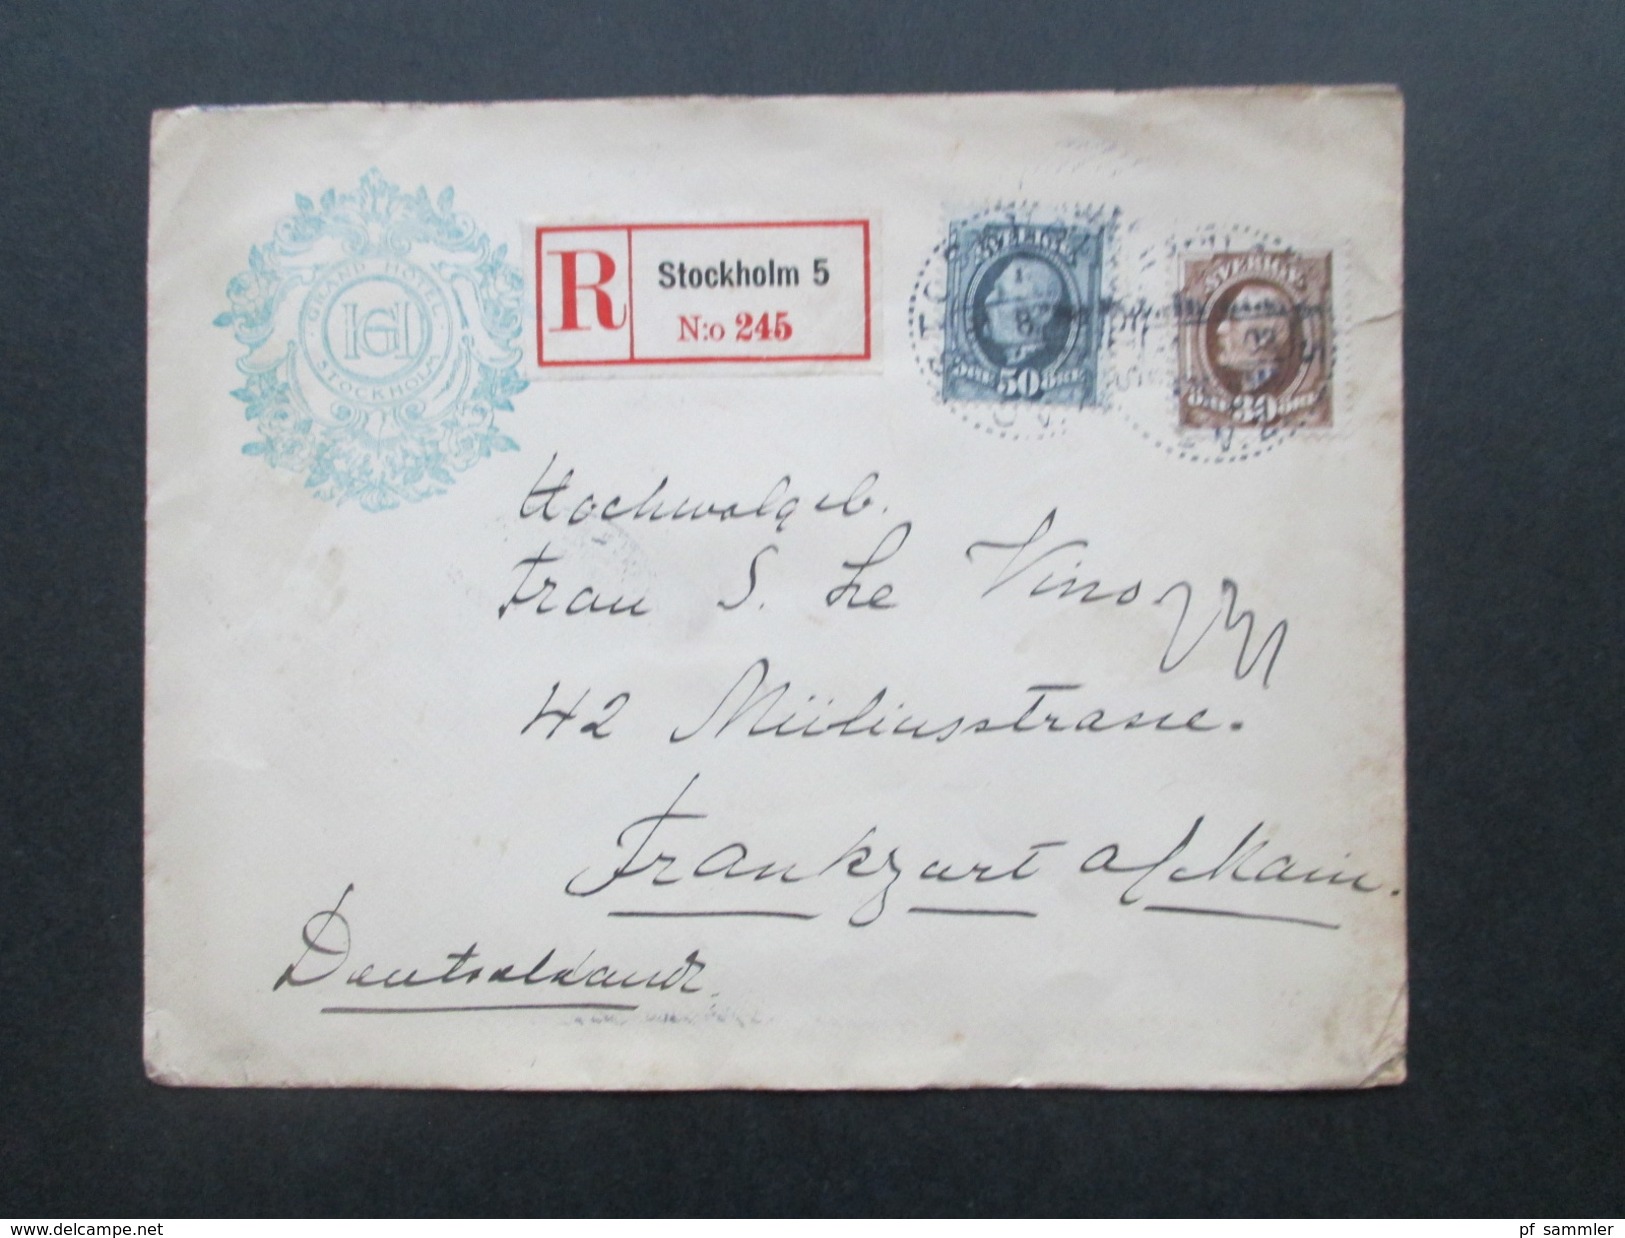 GRAND HOTEL
HG
STOCKHOLM
R
Stockholm 5
N:o 245
SVERIGE
50
ÖRE ÖRE
SVERIGE
30
ÖRE ÖRE
Hochwolgeb.
Frau S. Le Vino
42 Müliusstrasse.
Frankfurt a/Main.
Deutschland.
www.delcampe.net
pf_sammler